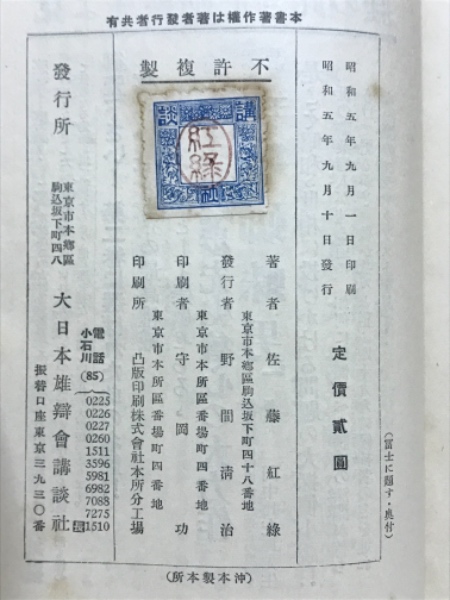 有共者行發者著は權作著書本
(富士に題す・奥付)
昭和五年九月一日印刷
昭和五年九月十日發行
定價貳圓
製複許不
談 講
社
紅綠
著者 佐藤紅綠
東京市本鄕區駒込坂下町四十八番地
發行者 野間淸治
東京市本所區番場町四番地
印刷者 守岡功
東京市本所區番場町四番地
印刷所 凸版印刷株式會社本所分工場
發行所
東京市本鄕區
駒込坂下町四八
大日本雄辯會講談社
電話
小石川(85)
0225
0226
0227
0260
1511
3596
5981
6982
7088
7275
1510
振替口座東京三九三〇番
(所本製本沖)